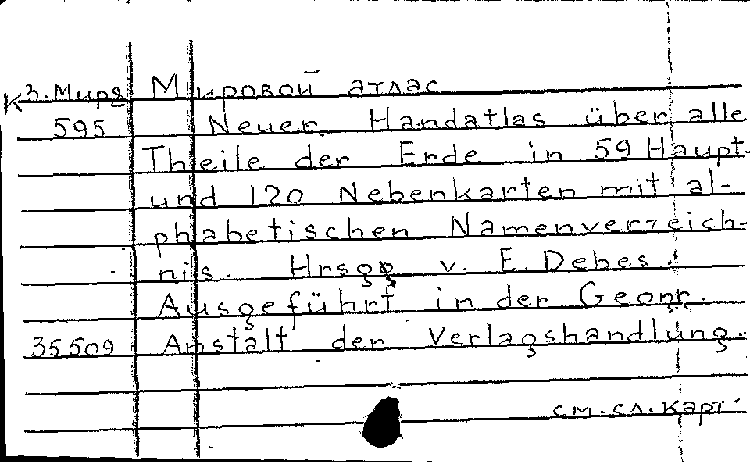 К3.Мира Мировой атлас
595 Neuer Handatlas über alle
Theile der Erde in 59 Haupt-
und 120 Nebenkarten mit al-
phabetischen Namenverzeich-
nis. Hrsgg v. E. Debes.
Ausgeführt in der Geogr.
35509 Anstalt der Verlagshandlung.
см. сл. карт.